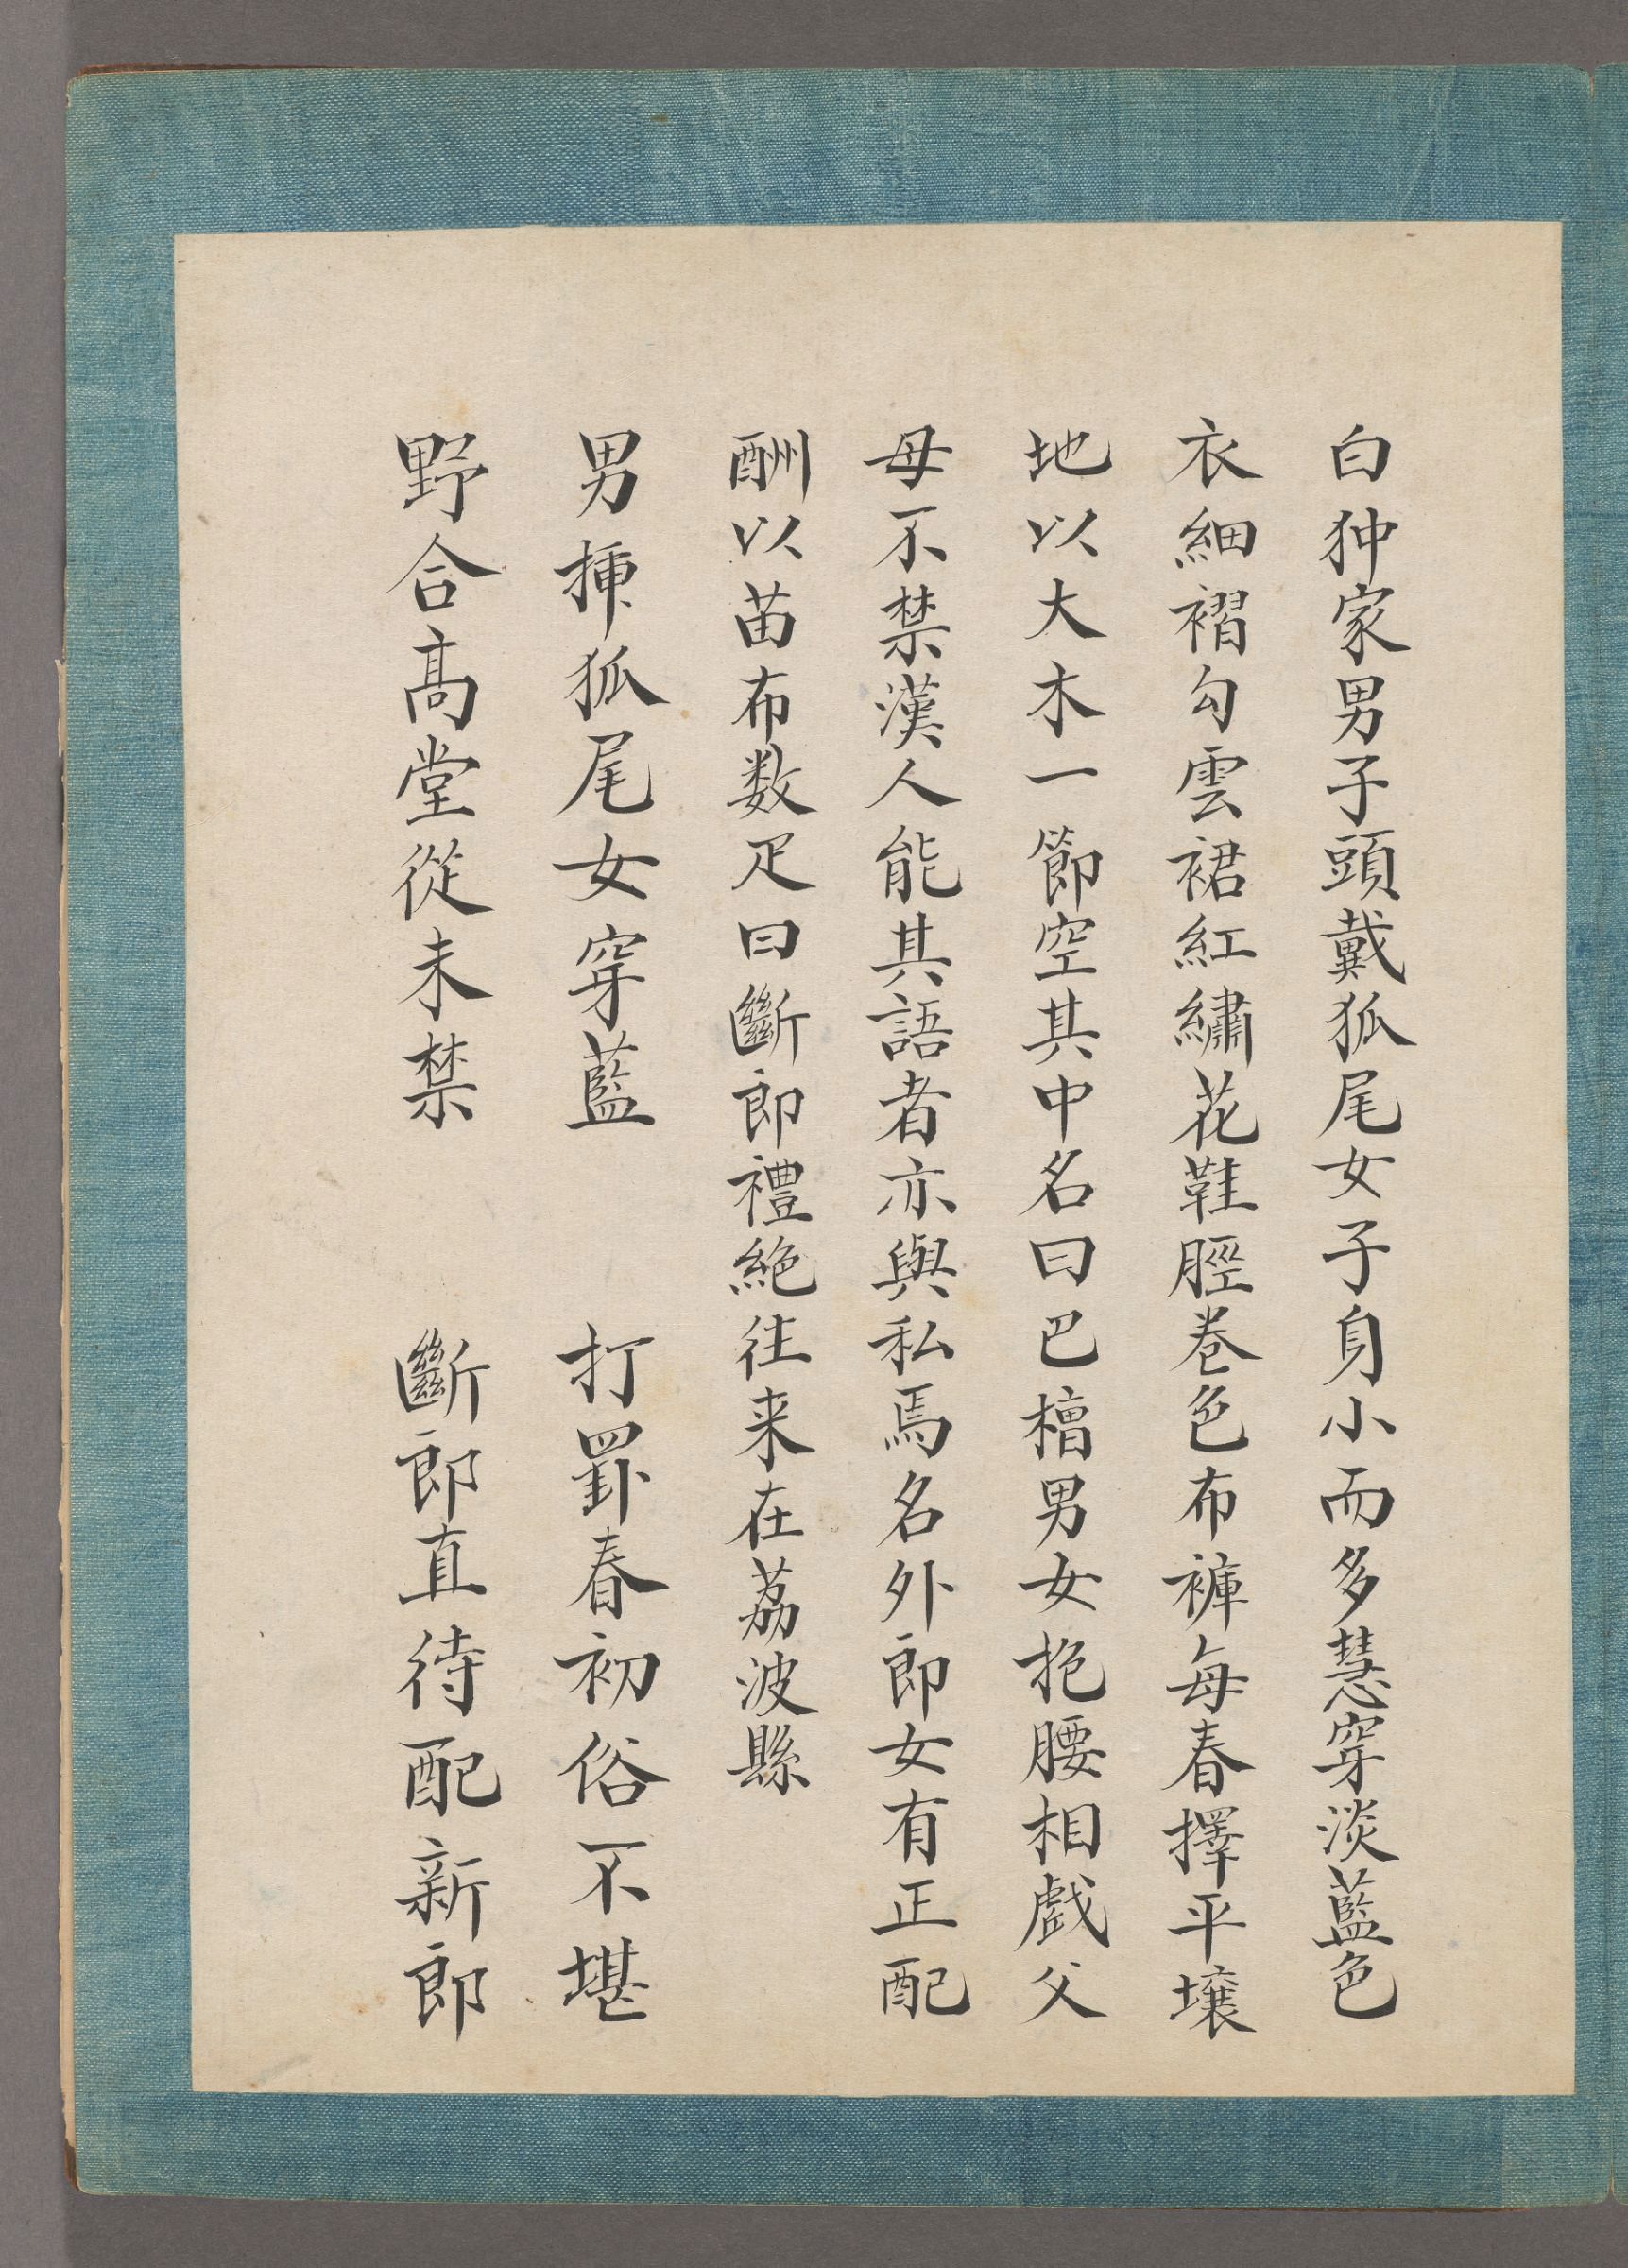 白狆家男子頭戴狐尾女子身小而多慧穿淡藍色
衣細褶勾雲裙紅繡花鞋脛卷色布褲每春擇平壤
地以大木一節空其中名曰巴槽男女抱腰相戲父
母不禁漢人能其語者亦與私焉名外郎女有正配
酬以苗布数疋曰斷郎禮絶往来在荔波縣
男揷狐尾女穿藍 打罫春初俗不堪
野合髙堂從未禁 斷郎直待配新郎